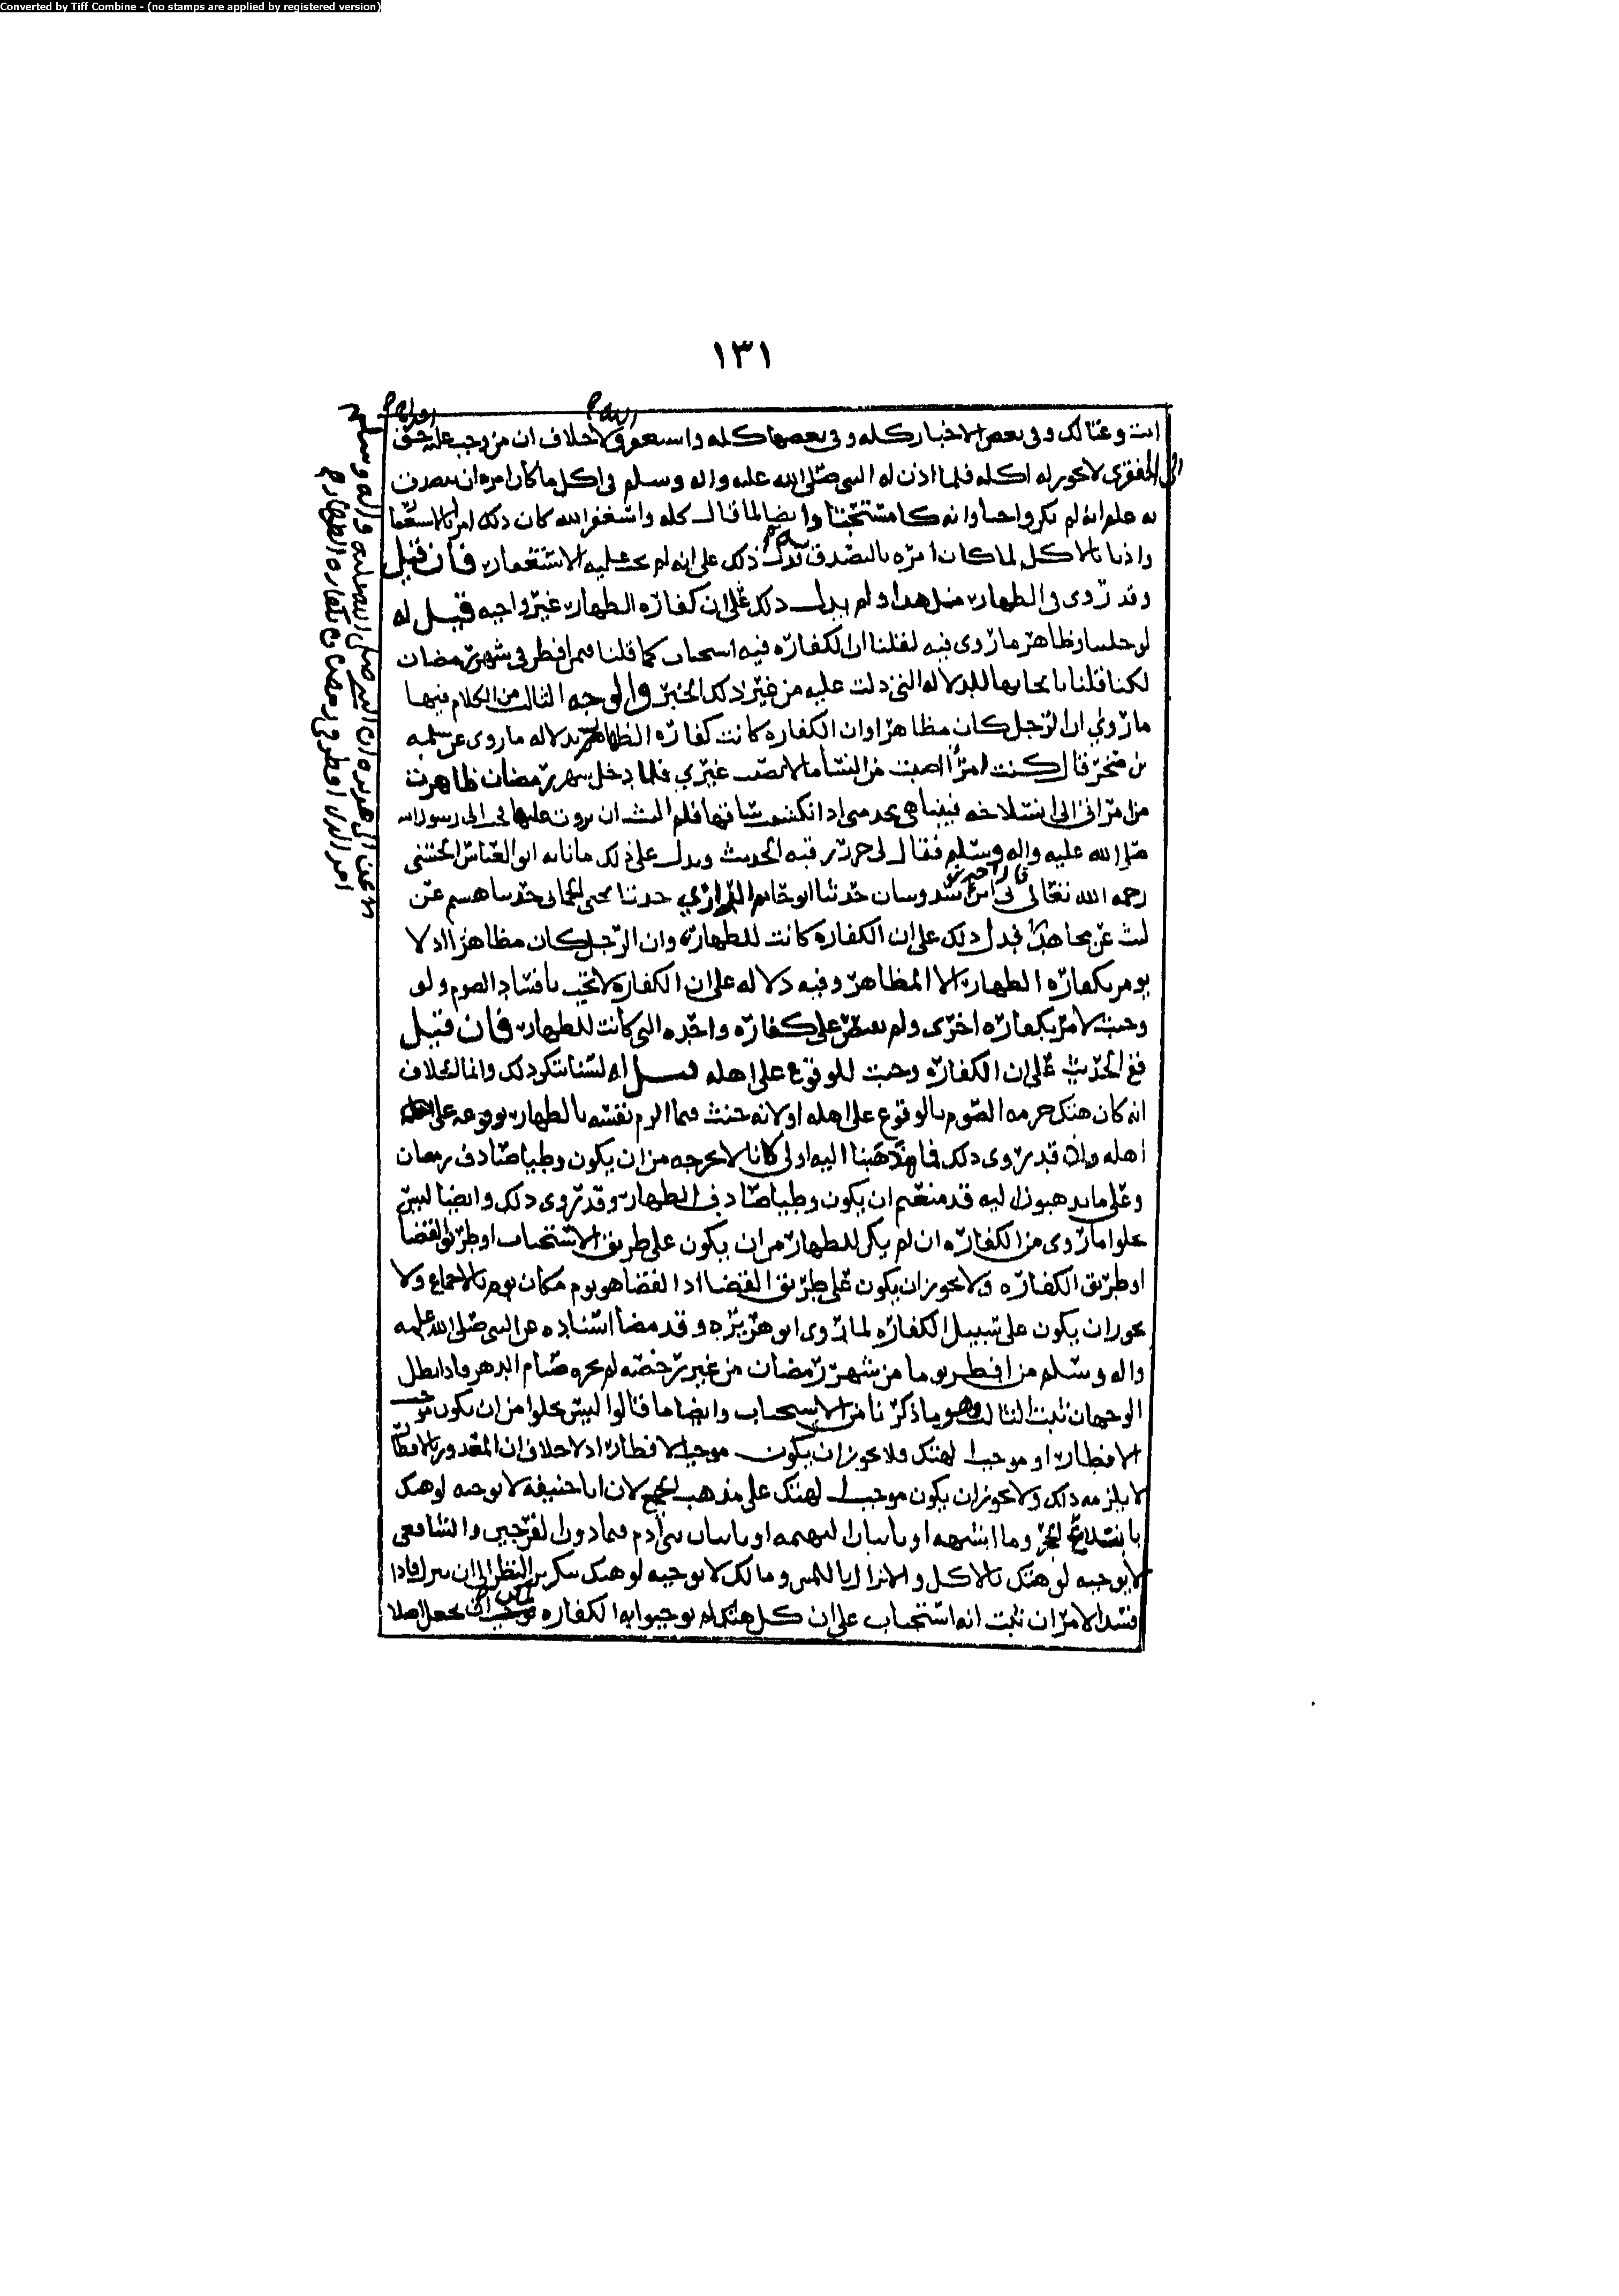 Converted by Tiff Combine - (no stamps are applied by registered version)
١٣١
انت وعيالك وفي بعض الاخبار كله وفي بعضها كله واستغفر ولا خلاف ان من وجب عليه حق
لا يجوز له اكله فلما اذن له النبي صلى الله عليه واله وسلم في اكل ما كان امره ان يتصدق
به علم انه لم يكن واجبا وانه كان مستحبا وايضا لما قال كله واستغفر الله كان ذلك امرا بالاستغفار
واذنا بالاكل لما كان امره بالتصدق فدل ذلك على انه لم يجب عليه الا الاستغفار فان قيل
وقد روى في الظهار مثل هذا ولم يدل ذلك على ان كفاره الظهار غير واجبه قيل له
لو خلينا وظاهر ما روى فيه لقلنا ان الكفاره فيه استحباب كما قلنا فيمن افطر في شهر رمضان
لكنا قلنا بايجابها للدلاله التي دلت عليه من غير ذلك الخبر والوجه الثالث من الكلام فيها
ما روي ان الرجل كان مظاهرا وان الكفاره كانت كفاره الظهار بدلاله ما روى عن سلمه
بن صخر قال كنت امرأ اصيب من النسا ما لا يصيب غيري فلما دخل شهر رمضان ظاهرت
من امراتي الى انسلاخه فبينا هي تخدمني اذا انكشف ساقها فلم البث ان نزوت عليها فجئ الى رسول الله
صلى الله عليه واله وسلم فقال لي حرر رقبه الحديث ويدل على ذلك ما انا به ابو العباس الحسني
رحمه الله تعالى قال احمد بن سدوسان حدثنا ابو حاتم الرازي حدثنا يحيى الحماني حدثنا هشيم عن
ليث عن مجاهد فدل ذلك على ان الكفاره كانت للظهار وان الرجل كان مظاهرا اذ لا
يومر بكفاره الظهار الا المظاهر وفيه دلاله على ان الكفاره لا تجب بافساد الصوم ولو
وجبت لامر بكفاره اخرى ولم يقتصر على كفاره واحده التي كانت للظهار فان قيل
ففي الحديث على ان الكفاره وجبت للوقوع على اهله قيل له لسنا ننكر ذلك وانما الخلاف
انه كان هتك حرمه الصوم بالوقوع على اهله او لانه حنث فيما الزم نفسه بالظهار بوقوعه على
اهله وان قد روى ذلك فما ذهبنا اليه اولى كانا لا نخرجه من ان يكون وطيا صادف رمضان
وعلى ما يذهبون اليه قد منعتم ان يكون وطيا صادف الظهار وقد روى ذلك وايضا ليس
يخلوا ما روى من الكفاره ان لم يكن للظهار من ان يكون على طريق الاستحباب او طريق القضا
او طريق الكفاره ولا يجوز ان يكون على طريق القضا اذ القضا هو يوم مكان يوم بالاجماع ولا
يجوز ان يكون على سبيل الكفاره لما روى ابو هريره وقد مضا اسناده عن النبي صلى الله عليه
واله وسلم من افطر يوما من شهر رمضان من غير رخصه لم يجزه صيام الدهر فاذا بطل
الوجهان ثبت الثالث وهو ما ذكرنا من الاستحباب وايضا ما قالوا ليس يخلوا من ان يكون موجب
الافطار او موجبا لهتك ولا يجوز ان يكون موجبا الافطار اذ لا خلاف ان المعذور بالافطار
لا يلزمه ذلك ولا يجوز ان يكون موجبا لهتك على مذهب الجميع لان ابا حنيفه لا يوجبه لو هتك
بابتلاع الحجر وما اشبهه او باتيان البهيمه او باتيان بني آدم فيما دون الفرجين والشافعي
لا يوجبه لو هتك بالاكل والانزال باللمس ومالك لا يوجبه لو هتك بتكرير النظر الى ان ينزل فاذا
فسد الامران ثبت انه استحباب على ان كل هتك لم يوجبوا به الكفاره يجعل اصلا